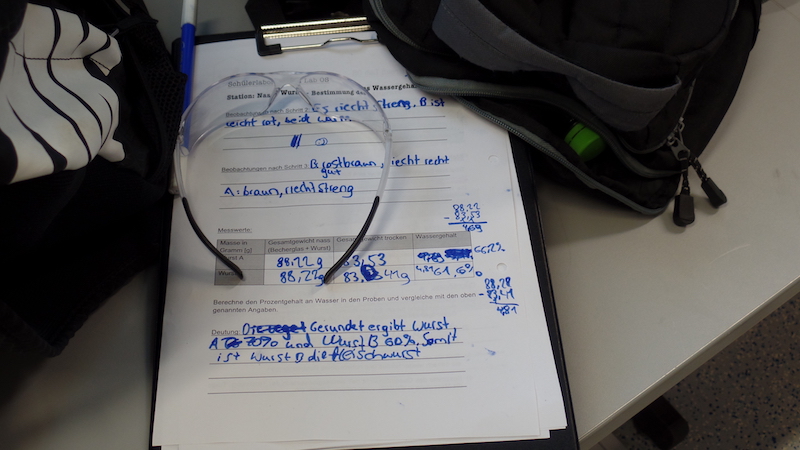 Station: Nas Wur Bestimmung de s Wassergehal
Beobachtungen nach Schritt 2: Es riecht streng, B ist
leicht rot, beide warm
Beobachtungen nach Schritt 3: B: rostbraun, riecht recht
gut
A: braun, riecht streng
88,22
- 83,53
4,69
Messwerte:
Masse in Gramm [g] Gesamtgewicht nass (Becherglas + Wurst) Gesamtgewicht trocken Wassergehalt
Wurst A 88,22g 83,53 66,2%
Wurst 88,22g 83, 41g 4,81 61,6%
88,28
- 83,41
4,81
Berechne den Prozentgehalt an Wasser in den Proben und vergleiche mit den oben
genannten Angaben.
Deutung: Gerundet ergibt Wurst
A 70% und Wurst B 60%, Somit
ist Wurst B die Fleischwurst